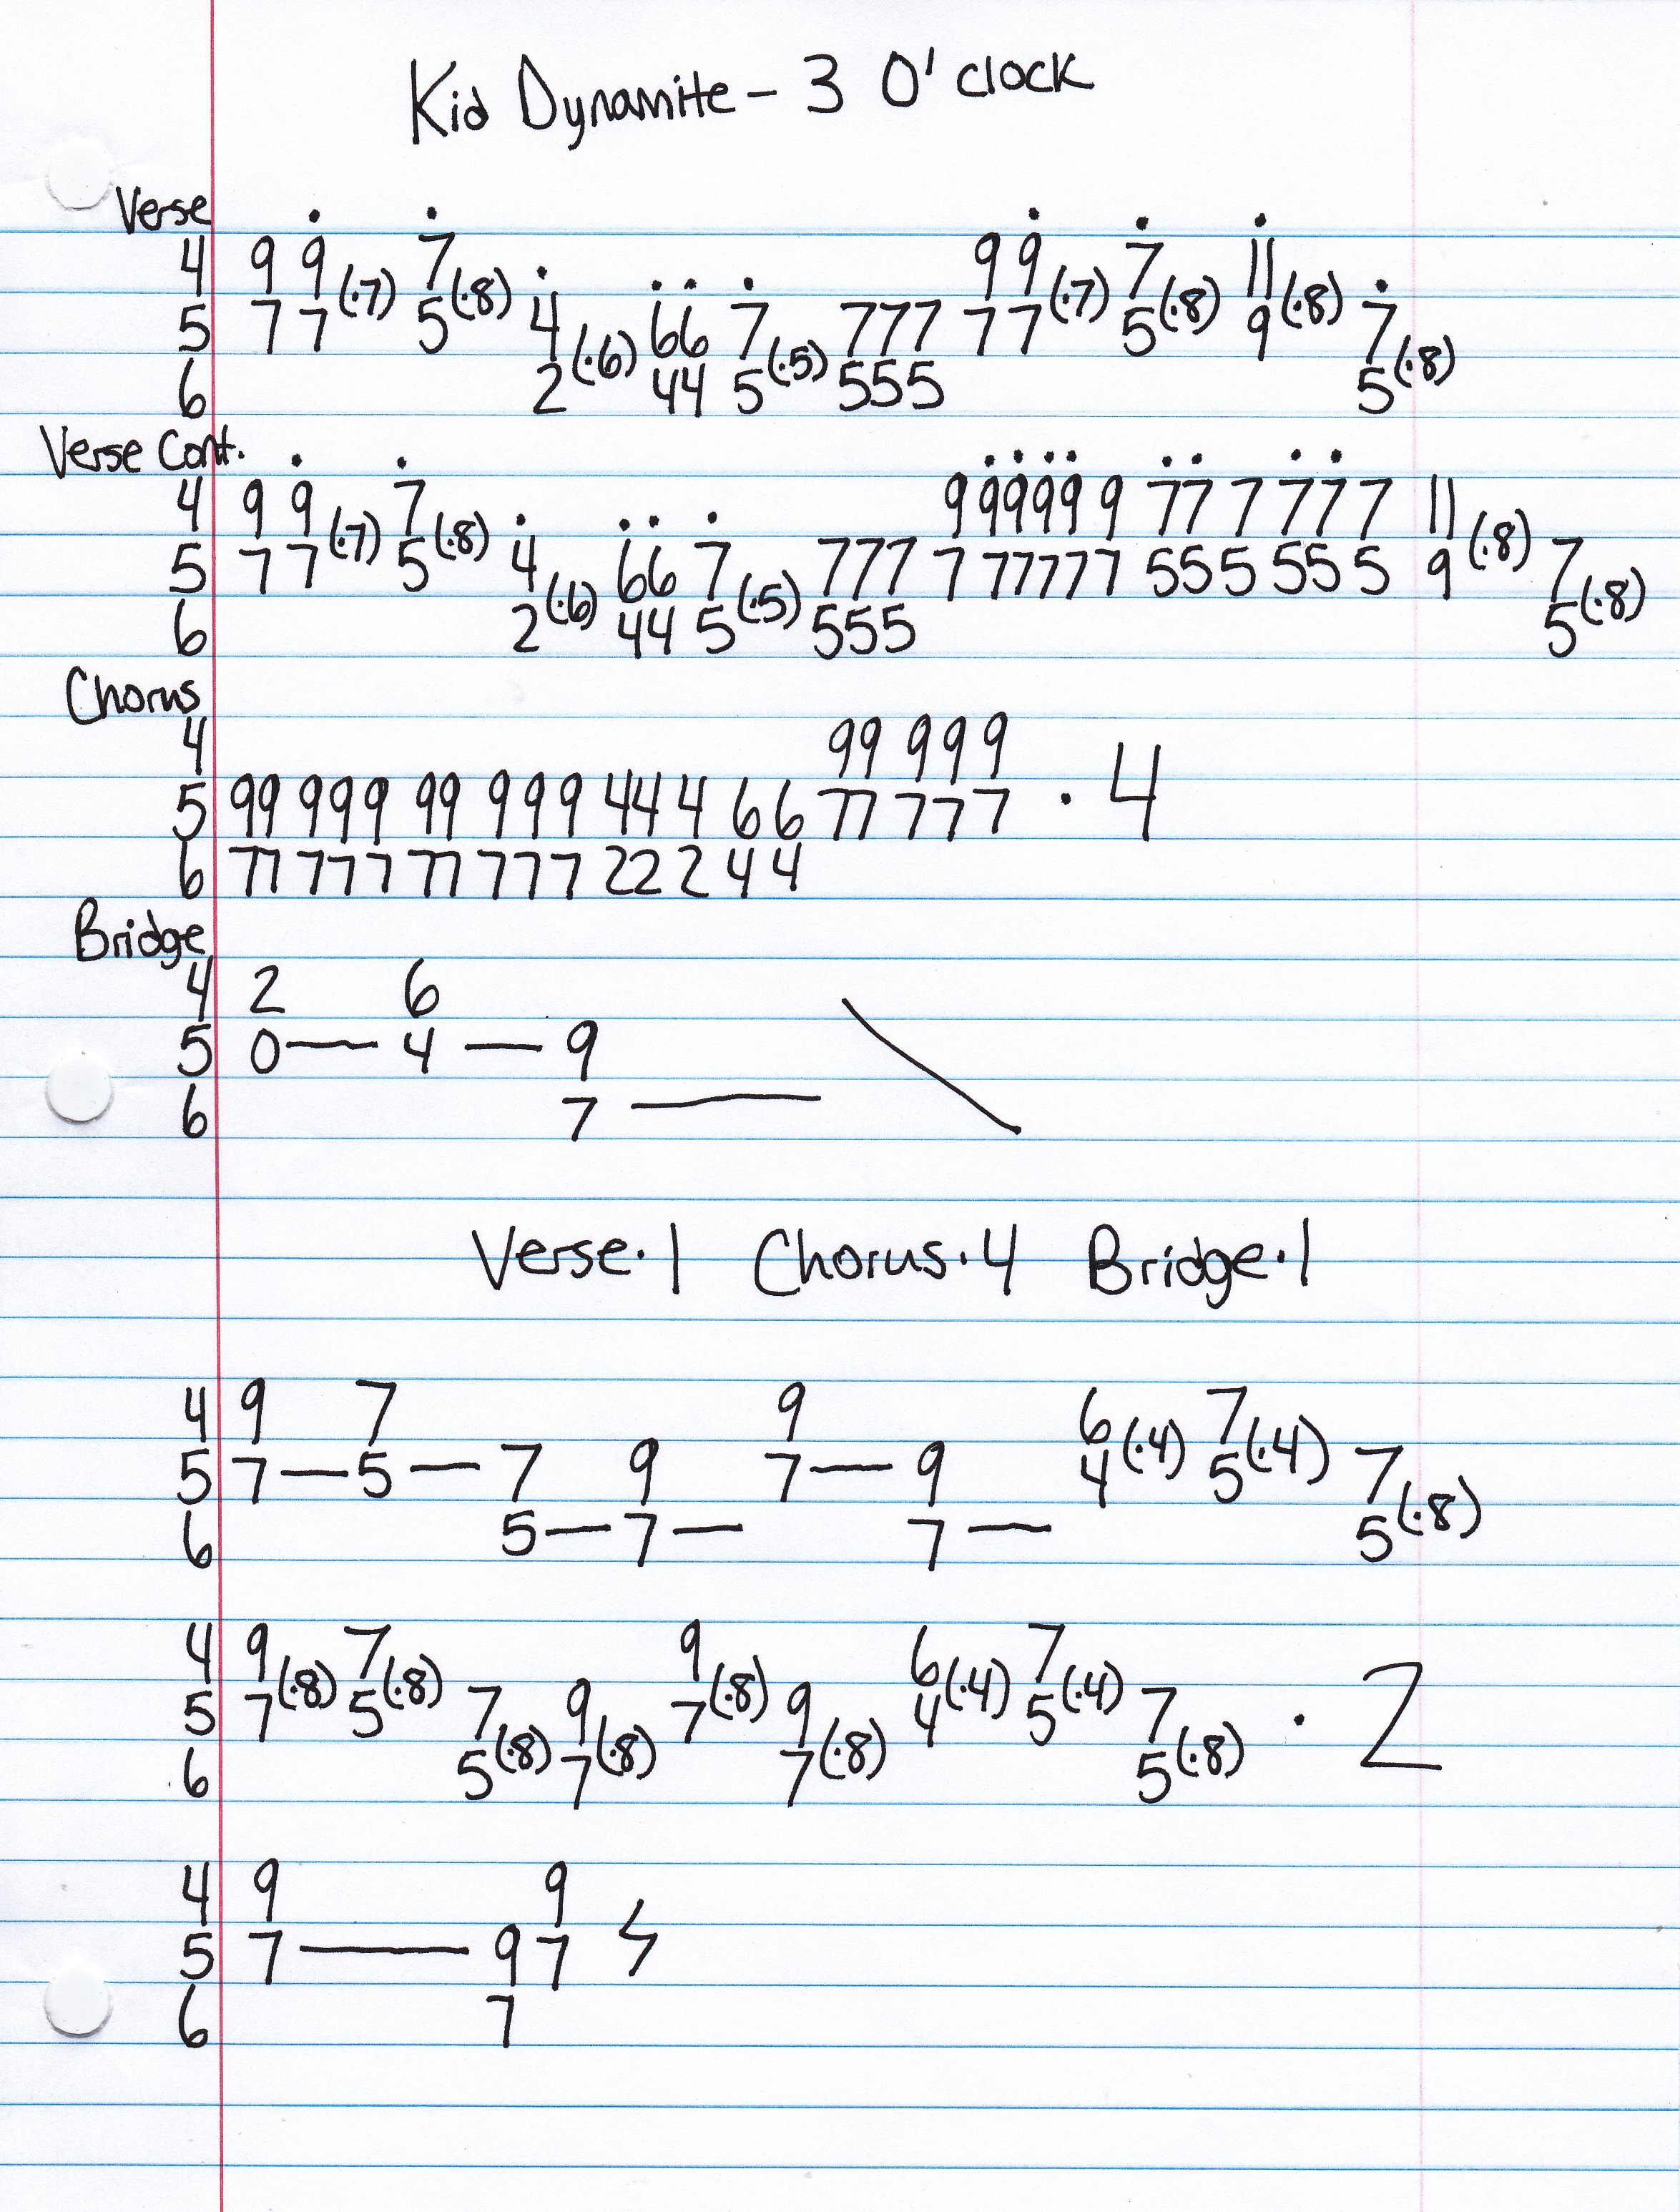 Kid Dynamite - 3 O'clock
Verse
4 9 9 7 9 9 7 11
5 7 7 (·7) 5 (·8) 4 66 7 777 7 7 (·7) 5 (·8) 9 (·8) 7
6 2 (·6) 44 5 (·5) 555 5 (·8)
Verse Cont.
4 9 9 7 9 9999 9 77 7 77 7 11
5 7 7 (·7) 5 (·8) 4 66 7 777 7 7777 7 55 5 55 5 9 (·8) 7
6 2 (·6) 44 5 (·5) 555 5 (·8)
Chorus
4 99 9 9 9
5 99 999 99 999 44 4 6 6 77 7 7 7 · 4
6 77 777 77 777 22 2 4 4
Bridge
4 2 6
5 0 — 4 — 9
6 7 —
Verse·1 Chorus·4 Bridge·1
4 9 7 9 6 7
5 7 — 5 — 7 9 7 — 9 4 (·4) 5 (·4) 7
6 5 — 7 — 7 — 5 (·8)
4 9 7 9 6 7
5 7 (·8) 5 (·8) 7 9 7 (·8) 9 4 (·4) 5 (·4) 7 · 2
6 5 (·8) 7 (·8) 7 (·8) 5 (·8)
4 9 9
5 7 — 9 7
6 7